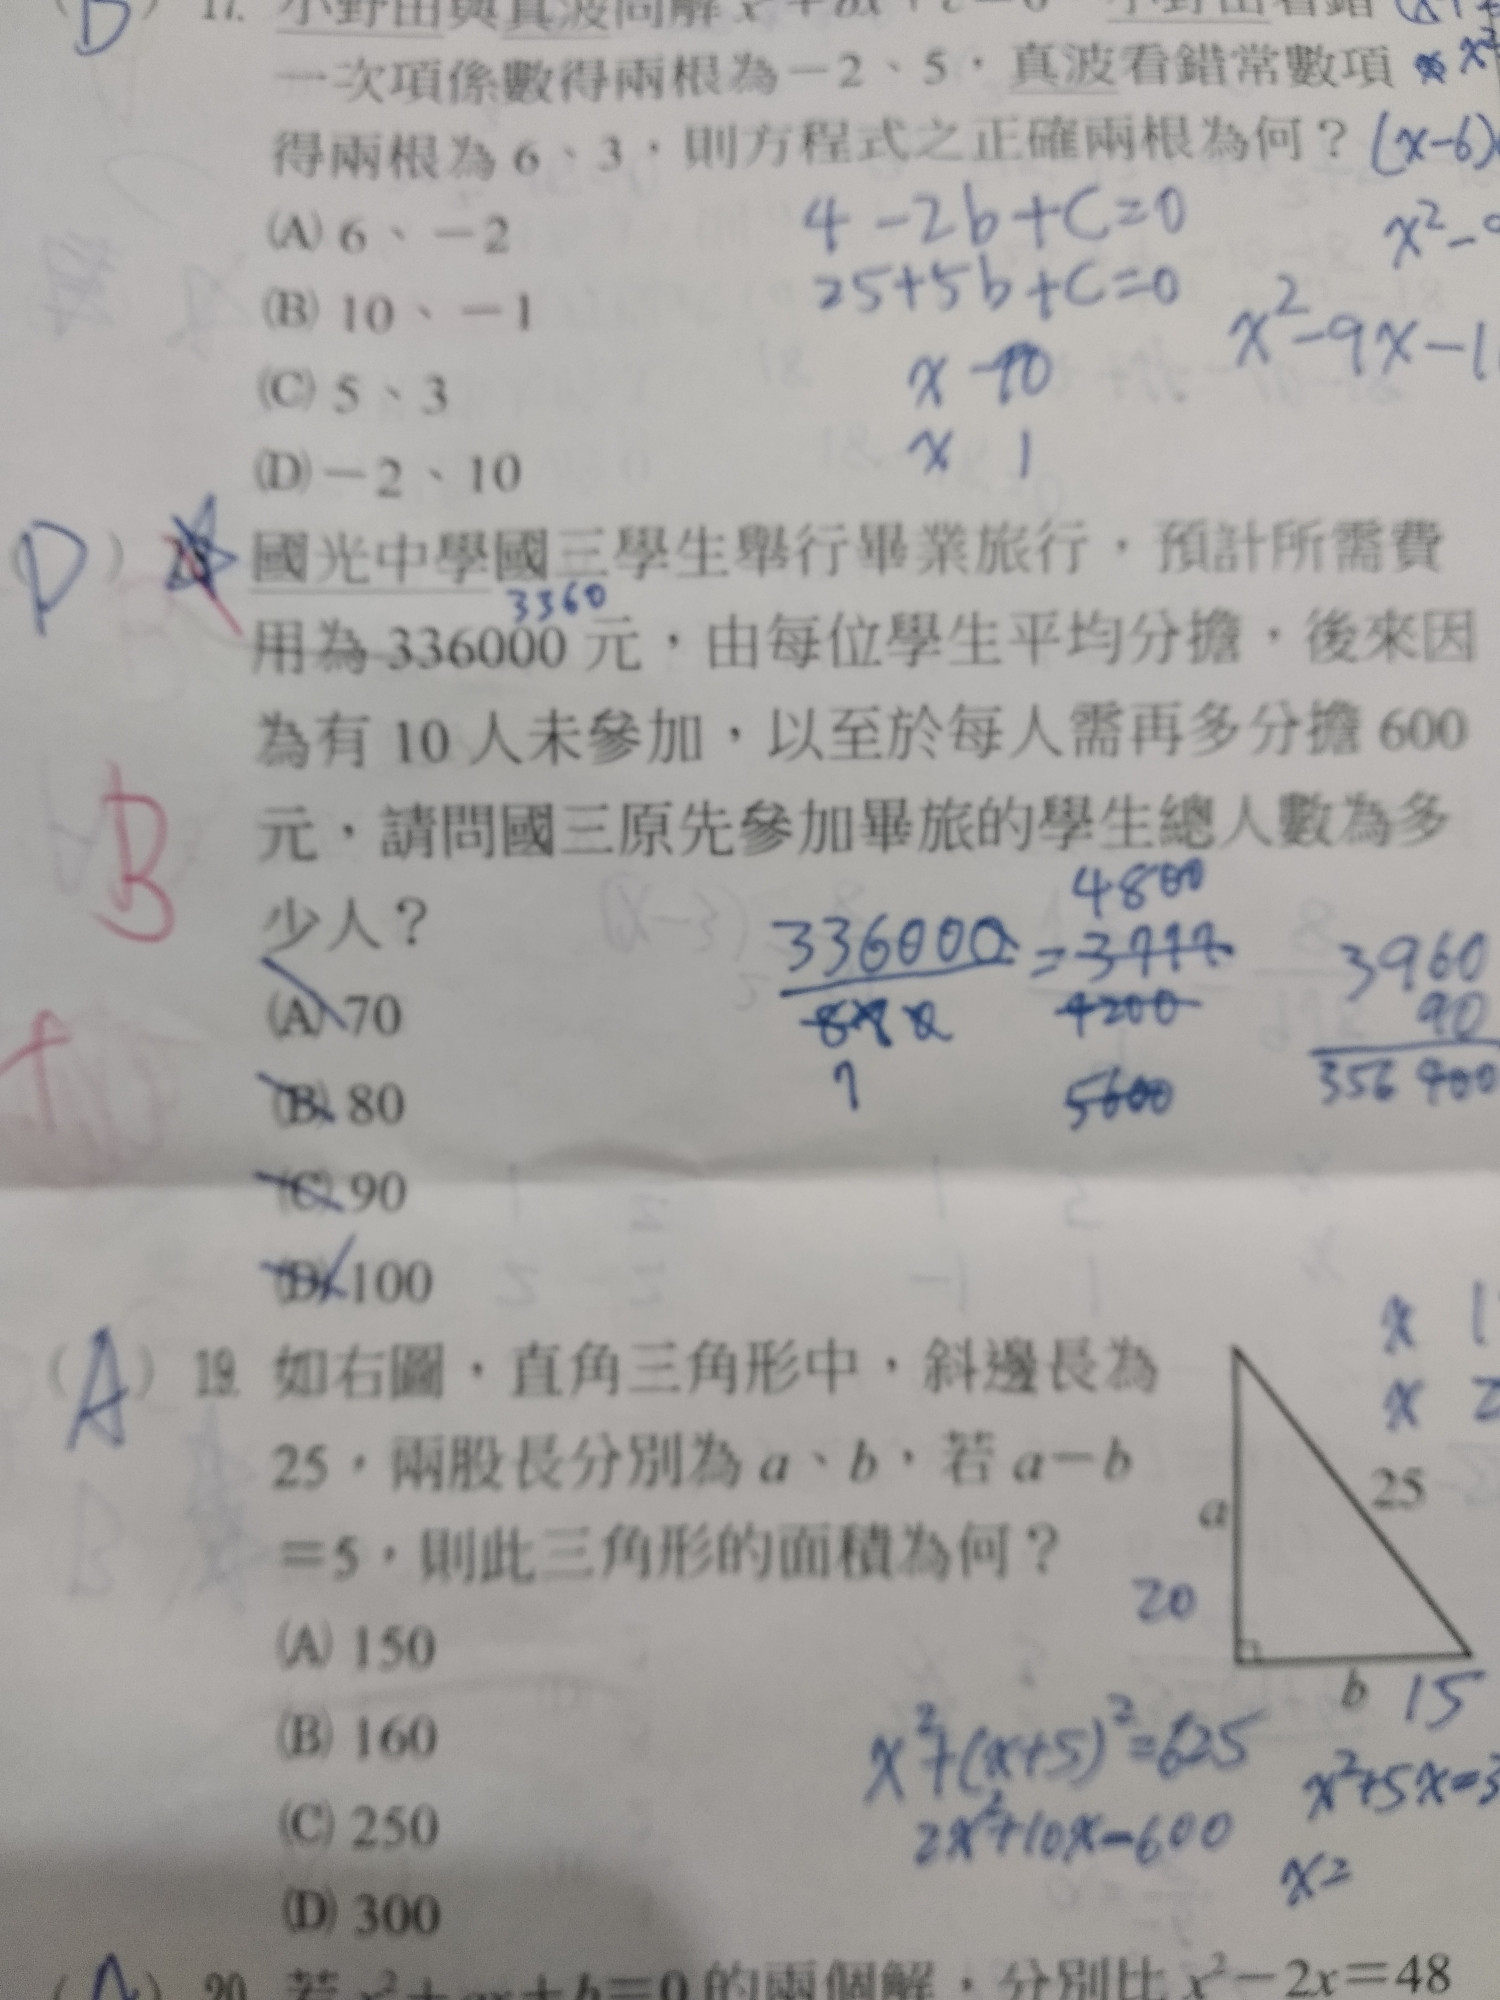 一次項係數得兩根為-2、5，真波看錯常數項
得兩根為6、3，則方程式之正確兩根為何？ (x-6)
(A) 6、-2
4-2b+c=0
25+5b+c=0
(B) 10、-1
(C) 5、3
x 1
(D) -2、10
D
國光中學國三學生舉行畢業旅行，預計所需費
3360
用為336000元，由每位學生平均分擔，後來因
為有10人未參加，以至於每人需再多分擔600
元，請問國三原先參加畢旅的學生總人數為多
少人？
B
4800
336000
3960
90
4200
5600
(A) 70
(B) 80
(C) 90
(D) 100
(A) 19. 如右圖，直角三角形中，斜邊長為
25，兩股長分別為a、b，若a-b
=5，則此三角形的面積為何？
a
25
20
b 15
(A) 150
(B) 160
(C) 250
(D) 300
x²+(x+5)²=625
2x²+10x-600
x²+5x=3
x=
20. 若x²+ax+b=0的兩個解，分別比x²-2x=48